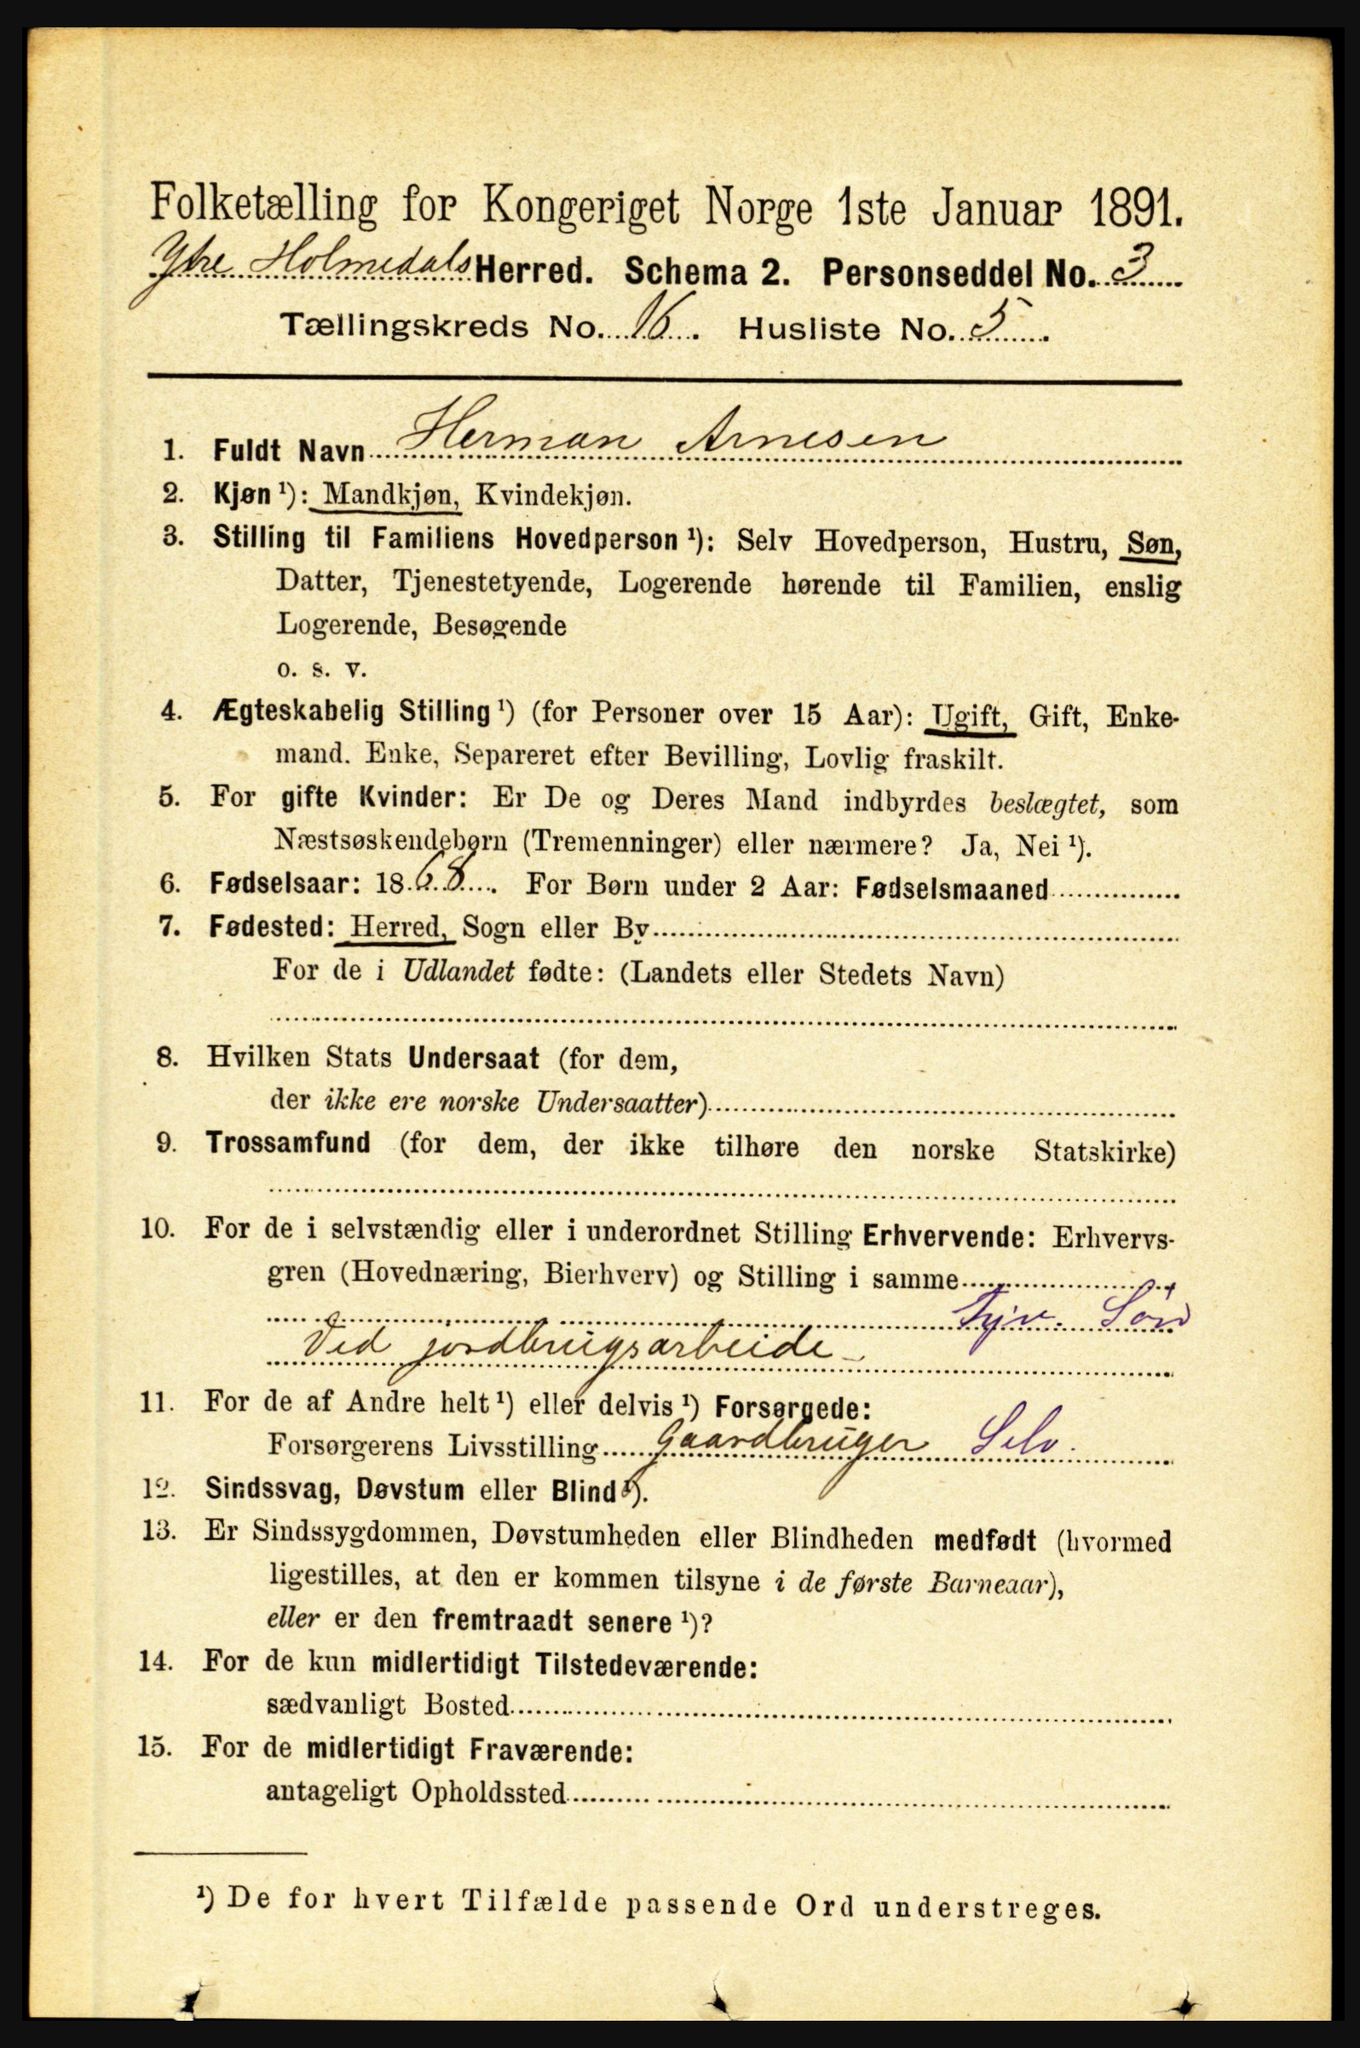 Folketælling for Kongeriget Norge 1ste Januar 1891.
Ytre Holmedals Herred. Schema 2. Personseddel No. 3
Tællingskreds No. 16. Husliste No. 5.
1. Fuldt Navn Herman Arnesen
2. Kjøn ¹): Mandkjøn, Kvindekjøn.
3. Stilling til Familiens Hovedperson ¹): Selv Hovedperson, Hustru, Søn,
Datter, Tjenestetyende, Logerende hørende til Familien, enslig
Logerende, Besøgende
o. s. v.
4. Ægteskabelig Stilling ¹) (for Personer over 15 Aar): Ugift, Gift, Enke-
mand. Enke, Separeret efter Bevilling, Lovlig fraskilt.
5. For gifte Kvinder: Er De og Deres Mand indbyrdes beslægtet, som
Næstsøskendebørn (Tremenninger) eller nærmere? Ja, Nei ¹).
6. Fødselsaar: 1868. For Børn under 2 Aar: Fødselsmaaned
7. Fødested: Herred, Sogn eller By
For de i Udlandet fødte: (Landets eller Stedets Navn)
8. Hvilken Stats Undersaat (for dem,
der ikke ere norske Undersaatter)
9. Trossamfund (for dem, der ikke tilhøre den norske Statskirke)
10. For de i selvstændig eller i underordnet Stilling Erhvervende: Erhvervs-
gren (Hovednæring, Bierhverv) og Stilling i samme
Søn
Ved jordbrugsarbeide
11. For de af Andre helt ¹) eller delvis ¹) Forsørgede:
Forsørgerens Livsstilling Gaardbruger Selv.
12. Sindssvag, Døvstum eller Blind ¹).
13. Er Sindssygdommen, Døvstumheden eller Blindheden medfødt (hvormed
ligestilles, at den er kommen tilsyne i de første Barneaar),
eller er den fremtraadt senere ¹)?
14. For de kun midlertidigt Tilstedeværende:
sædvanligt Bosted
15. For de midlertidigt Fraværende:
antageligt Opholdssted
¹) De for hvert Tilfælde passende Ord understreges.